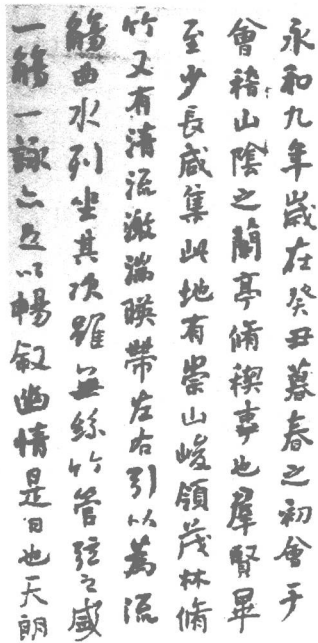 永和九年歲在癸丑暮春之初會于
會稽山陰之蘭亭脩稧事也羣賢畢
至少長咸集此地有崇山峻領茂林脩
竹又有清流激湍暎帶左右引以為流
觴曲水列坐其次雖無絲竹管弦之盛
一觴一詠亦足以暢敘幽情是日也天朗